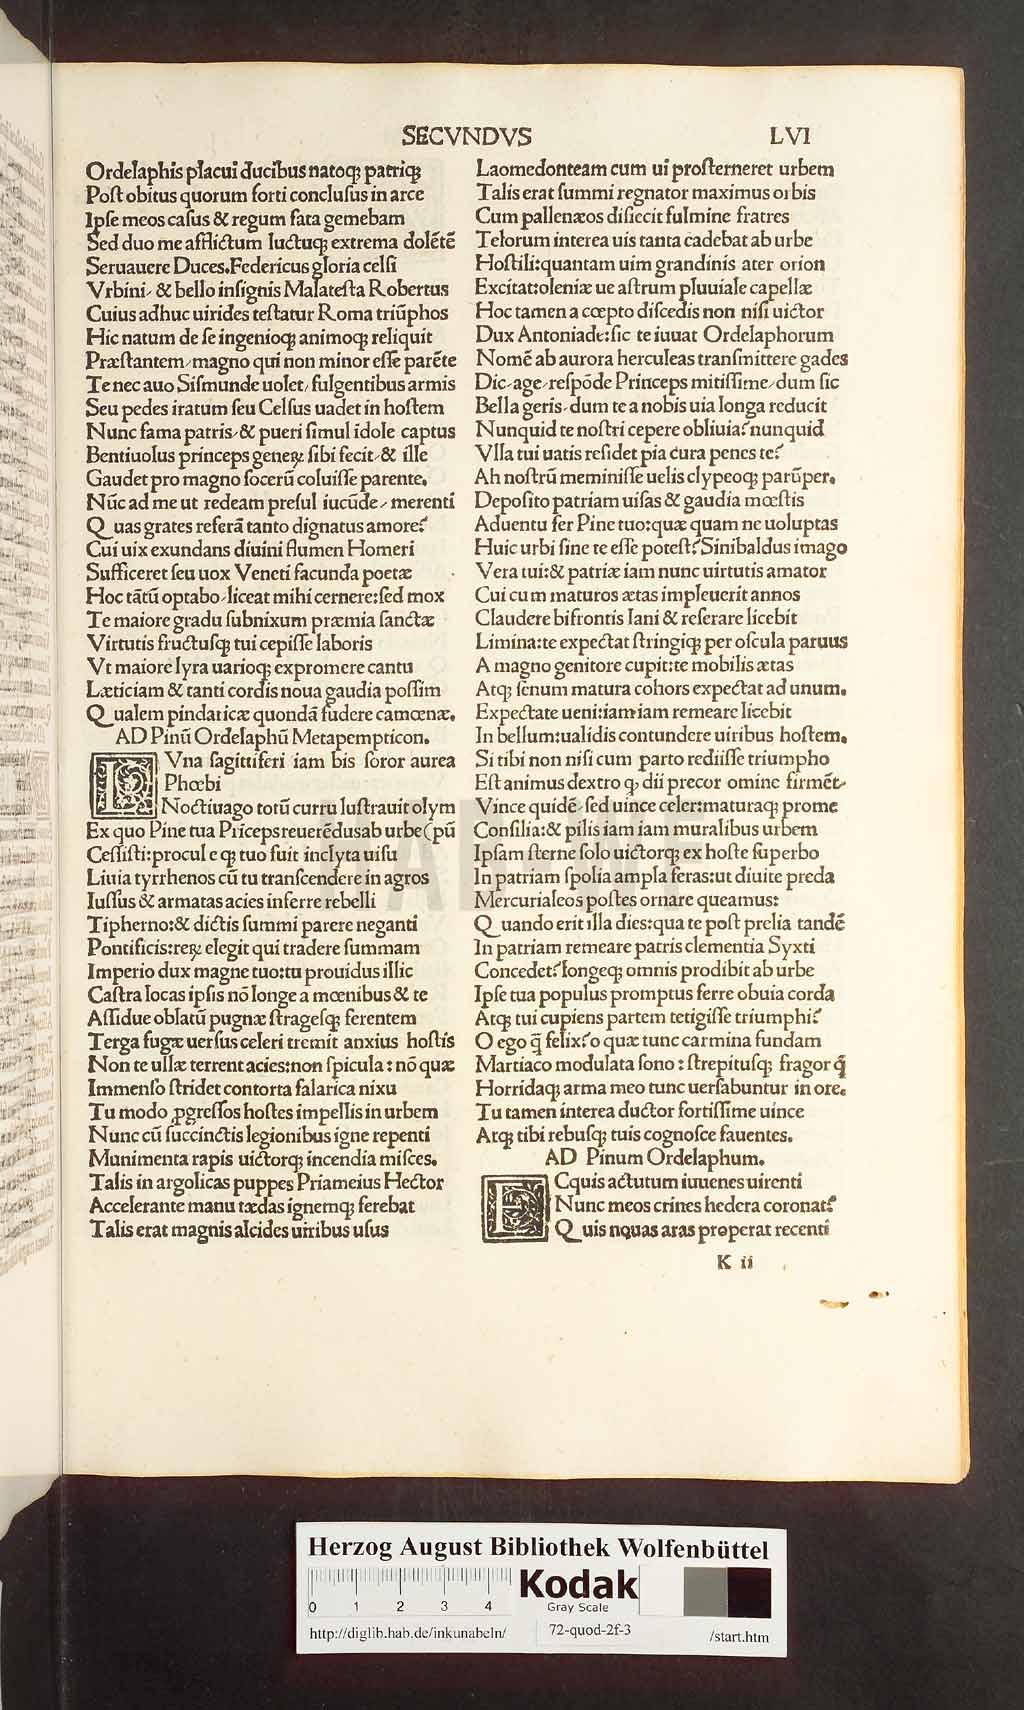 SECVNDVS
LVI
Ordelaphis placui ducibus natoqꝫ patriqꝫ
Poſt obitus quorum forti concluſus in arce
Ipſe meos caſus & regum fata gemebam
Sed duo me afflictum luctuqꝫ extrema dolētē
Seruauere Duces.Federicus gloria celſi
Vrbini, & bello inſignis Malateſta Robertus
Cuius adhuc uirides teſtatur Roma triūphos
Hic natum de ſe ingenioqꝫ animoqꝫ reliquit
Præſtantem, magno qui non minor eſſe parēte
Te nec auo Siſmunde uolet, fulgentibus armis
Seu pedes iratum ſeu Celſus uadet in hoſtem
Nunc fama patris, & pueri ſimul īdole captus
Bentiuolus princeps geneꝝ ſibi fecit, & ille
Gaudet pro magno ſocerū coluiſſe parente.
Nūc ad me ut redeam preſul iucūde, merenti
Quas grates referā tanto dignatus amore?
Cui uix exundans diuini flumen Homeri
Sufficeret ſeu uox Veneti facunda poetæ
Hoc tātū optabo, liceat mihi cernere:ſed mox
Te maiore gradu ſubnixum præmia ſanctæ
Virtutis fructuſqꝫ tui cepiſſe laboris
Vt maiore lyra uarioqꝫ expromere cantu
Læticiam & tanti cordis noua gaudia poſſim
Qualem pindaricæ quondā fudere camœnæ.
AD Pinū Ordelaphū Metapempticon.
LVna ſagittiferi iam bis ſoror aurea
Phœbi
Noctiuago totū curru luſtrauit olym
Ex quo Pine tua Prīceps reuerēdus ab urbe (pū
Ceſſiſti:procul e qꝫ tuo fuit inclyta uiſu
Liuia tyrrhenos cū tu tranſcendere in agros
Iuſſus & armatas acies inferre rebelli
Tipherno:& dictis ſummi parere neganti
Pontificis:reꝝ elegit qui tradere ſummam
Imperio dux magne tuo:tu prouidus illic
Caſtra locas ipſis nō longe a mœnibus & te
Aſſidue oblatū pugnæ ſtrageſqꝫ ferentem
Terga fugæ uerſus celeri tremit anxius hoſtis
Non te ullæ terrent acies:non ſpicula : nō quæ
Immenſo ſtridet contorta falarica nixu
Tu modo ꝓgreſſos hoſtes impellis in urbem
Nunc cū ſuccinctis legionibus igne repenti
Munimenta rapis uictorqꝫ incendia miſces.
Talis in argolicas puppes Priameius Hector
Accelerante manu tædas ignemqꝫ ferebat
Talis erat magnis alcides uiribus uſus
Laomedonteam cum ui proſterneret urbem
Talis erat ſummi regnator maximus orbis
Cum pallenæos diſiecit fulmine fratres
Telorum interea uis tanta cadebat ab urbe
Hoſtili:quantam uim grandinis ater orion
Excitat:oleniæ ue aſtrum pluuiale capellæ
Hoc tamen a cœpto diſcedis non niſi uictor
Dux Antoniade:ſic te iuuat Ordelaphorum
Nomē ab aurora herculeas tranſmittere gades
Dic, age, reſpōde Princeps mitiſſime, dum ſic
Bella geris, dum te a nobis uia longa reducit
Nunquid te noſtri cepere obliuia? nunquid
Vlla tui uatis reſidet pia cura penes te?
Ah noſtrū meminiſſe uelis clypeoqꝫ parūper.
Depoſito patriam uiſas & gaudia mœſtis
Aduentu fer Pine tuo:quæ quam ne uoluptas
Huic urbi ſine te eſſe poteſt? Sinibaldus imago
Vera tui:& patriæ iam nunc uirtutis amator
Cui cum maturos ætas impleuerit annos
Claudere bifrontis Iani & reſerare licebit
Limina:te expectat ſtringiqꝫ per oſcula paruus
A magno genitore cupit:te mobilis ætas
Atqꝫ ſenum matura cohors expectat ad unum.
Expectate ueni:iam iam remeare licebit
In bellum:ualidis contundere uiribus hoſtem.
Si tibi non niſi cum parto rediiſſe triumpho
Eſt animus dextro qꝫ dii precor omine firmēt,
Vince quidē, ſed uince celer:maturaqꝫ prome
Conſilia:& pilis iam iam muralibus urbem
Ipſam ſterne ſolo uictorqꝫ ex hoſte ſuperbo
In patriam ſpolia ampla feras:ut diuite preda
Mercurialeos poſtes ornare queamus:
Quando erit illa dies:qua te poſt prelia tandē
In patriam remeare patris clementia Syxti
Concedet? longeqꝫ omnis prodibit ab urbe
Ipſe tua populus promptus ferre obuia corda
Atqꝫ tui cupiens partem tetigiſſe triumphi?
O ego q̄ felix? o quæ tunc carmina fundam
Martiaco modulata ſono : ſtrepituſqꝫ fragorqꝫ
Horridaqꝫ arma meo tunc uerſabuntur in ore.
Tu tamen interea ductor fortiſſime uince
Atqꝫ tibi rebuſqꝫ tuis cognoſce fauentes.
AD Pinum Ordelaphum.
ECquis actutum iuuenes uirenti
Nunc meos crines hedera coronat?
Quis nouas aras properat recenti
K ii
HAB WF
Herzog August Bibliothek Wolfenbüttel
0 1 2 3 4
Kodak
Gray Scale
http://diglib.hab.de/inkunabeln/
72-quod-2f-3
/start.htm